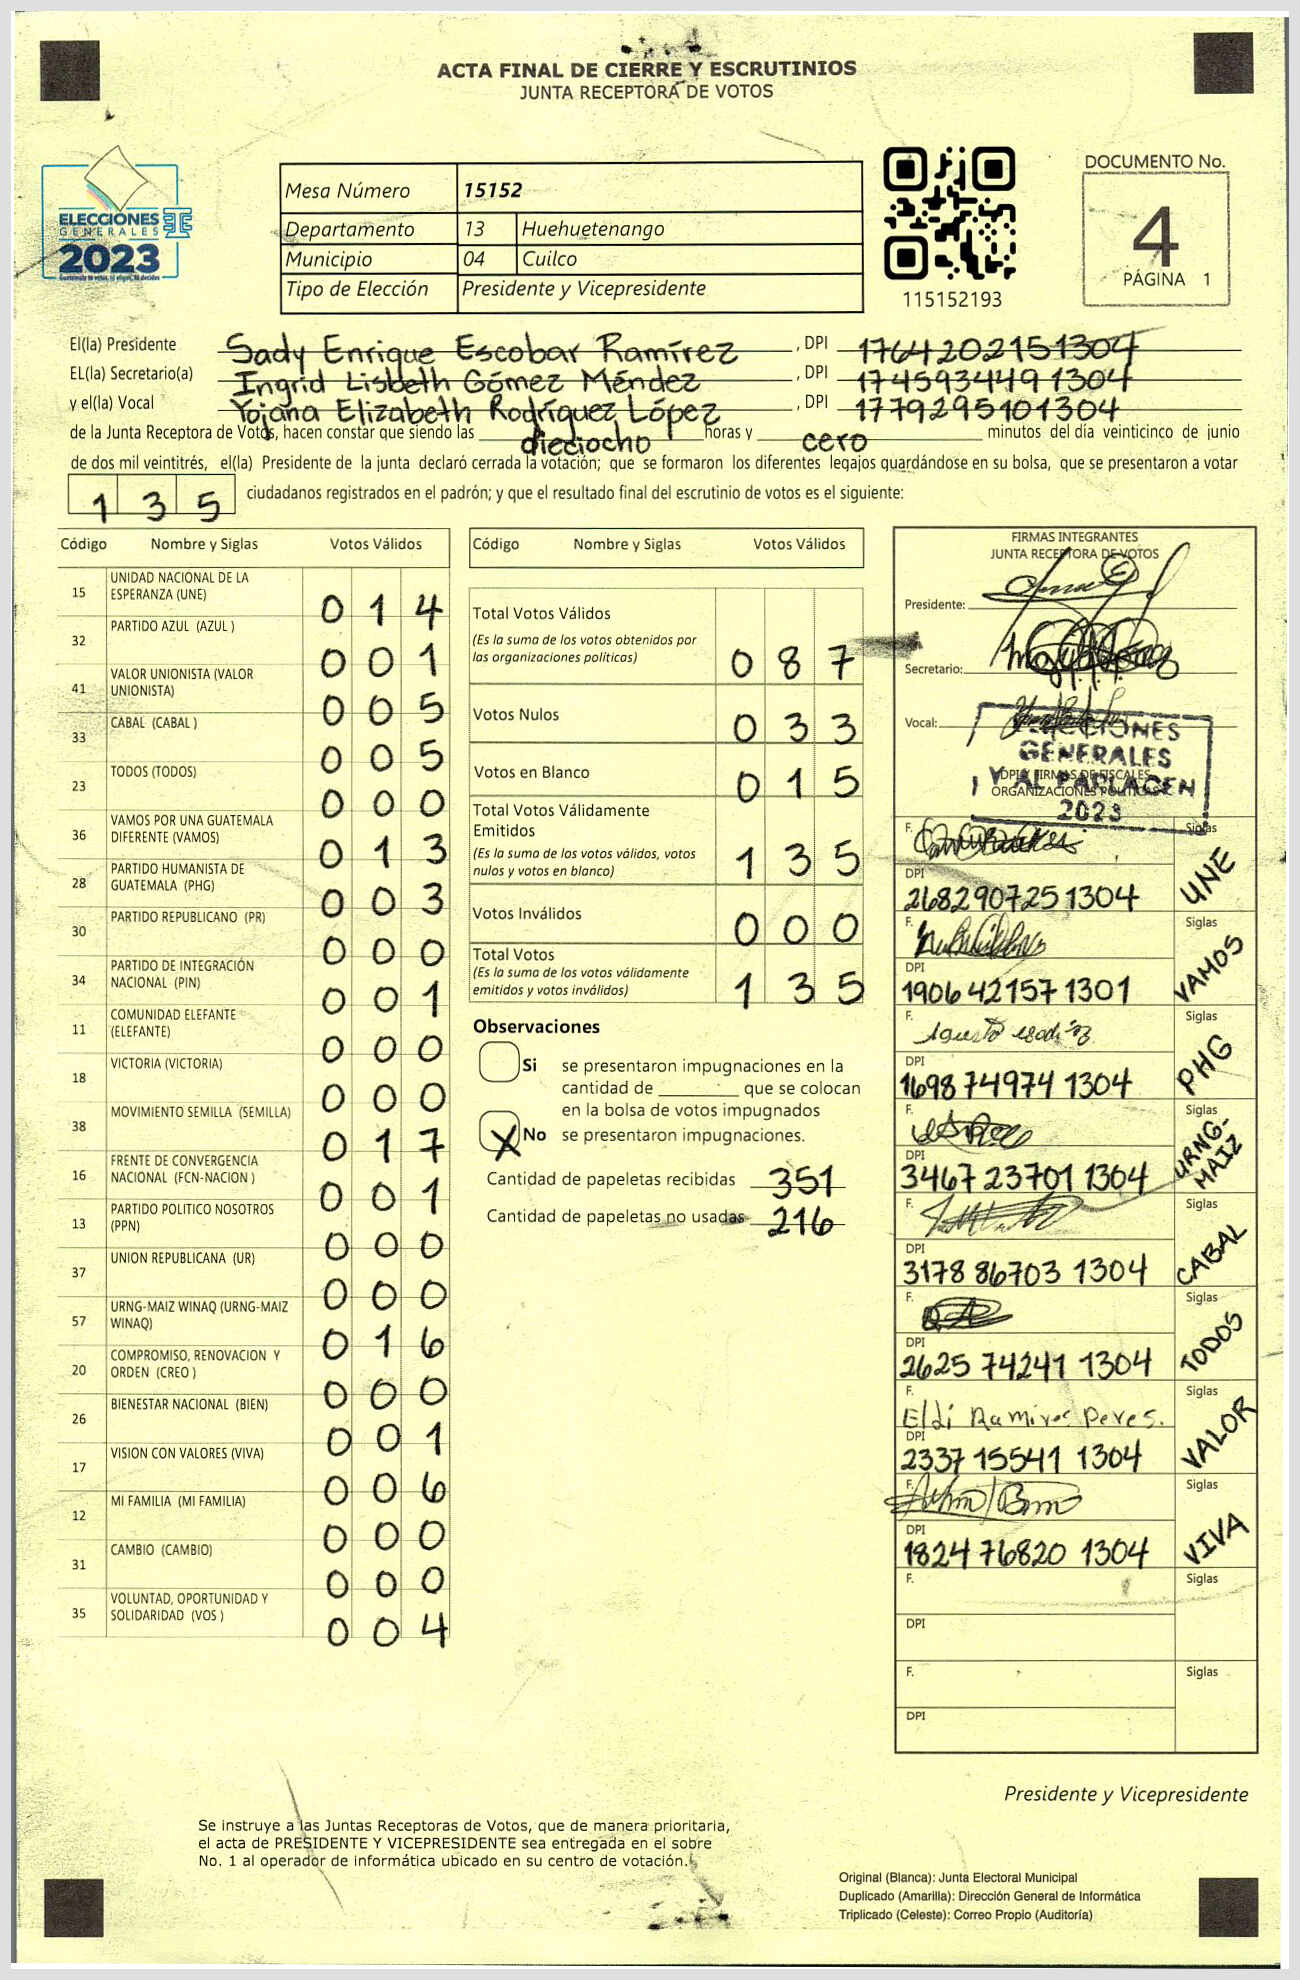 ACTA FINAL DE CIERRE Y ESCRUTINIOS
JUNTA RECEPTORA DE VOTOS
ELECCIONES
GENERALES
2023
Mesa Número 15152
Departamento 13 Huehuetenango
Municipio 04 Cuilco
Tipo de Elección Presidente y Vicepresidente
115152193
DOCUMENTO No.
4
PÁGINA 1
El(la) Presidente Sady Enrique Escobar Ramírez , DPI 1764202151304
EL(la) Secretario(a) Ingrid Lisbeth Gómez Méndez , DPI 1745934491304
y el(la) Vocal Yojana Elizabeth Rodríguez López , DPI 1779295101304
de la Junta Receptora de Votos, hacen constar que siendo las dieciocho horas y cero minutos del día veinticinco de junio
de dos mil veintitrés, el(la) Presidente de la junta declaró cerrada la votación; que se formaron los diferentes legajos guardándose en su bolsa, que se presentaron a votar
135 ciudadanos registrados en el padrón; y que el resultado final del escrutinio de votos es el siguiente:
Código Nombre y Siglas Votos Válidos
15 UNIDAD NACIONAL DE LA ESPERANZA (UNE) 014
32 PARTIDO AZUL (AZUL ) 001
41 VALOR UNIONISTA (VALOR UNIONISTA) 005
33 CABAL (CABAL ) 005
23 TODOS (TODOS) 000
36 VAMOS POR UNA GUATEMALA DIFERENTE (VAMOS) 013
28 PARTIDO HUMANISTA DE GUATEMALA (PHG) 003
30 PARTIDO REPUBLICANO (PR) 000
34 PARTIDO DE INTEGRACIÓN NACIONAL (PIN) 001
11 COMUNIDAD ELEFANTE (ELEFANTE) 000
18 VICTORIA (VICTORIA) 000
38 MOVIMIENTO SEMILLA (SEMILLA) 017
16 FRENTE DE CONVERGENCIA NACIONAL (FCN-NACION ) 001
13 PARTIDO POLITICO NOSOTROS (PPN) 000
37 UNION REPUBLICANA (UR) 000
57 URNG-MAIZ WINAQ (URNG-MAIZ WINAQ) 016
20 COMPROMISO, RENOVACION Y ORDEN (CREO ) 000
26 BIENESTAR NACIONAL (BIEN) 001
17 VISION CON VALORES (VIVA) 006
12 MI FAMILIA (MI FAMILIA) 000
31 CAMBIO (CAMBIO) 000
35 VOLUNTAD, OPORTUNIDAD Y SOLIDARIDAD (VOS ) 004
Código Nombre y Siglas Votos Válidos
Total Votos Válidos 087
(Es la suma de los votos obtenidos por
las organizaciones políticas)
Votos Nulos 033
Votos en Blanco 015
Total Votos Válidamente
Emitidos 135
(Es la suma de los votos válidos, votos
nulos y votos en blanco)
Votos Inválidos 000
Total Votos 135
(Es la suma de los votos válidamente
emitidos y votos inválidos)
Observaciones
Si se presentaron impugnaciones en la
cantidad de ________ que se colocan
en la bolsa de votos impugnados
X No se presentaron impugnaciones.
Cantidad de papeletas recibidas 351
Cantidad de papeletas no usadas 216
FIRMAS INTEGRANTES
JUNTA RECEPTORA DE VOTOS
Presidente:
Secretario:
Vocal:
ELECCIONES
GENERALES
Y AL PARLACEN
2023
DPI Y FIRMAS DE FISCALES
ORGANIZACIONES POLITICAS
F. Siglas UNE
DPI 2682907251304
F. Siglas VAMOS
DPI 1906421571301
F. Siglas PHG
DPI 1698749741304
F. Siglas URNG-MAIZ
DPI 3467237011304
F. Siglas CABAL
DPI 3178867031304
F. Siglas TODOS
DPI 2625742411304
F. Eldi Ramires Peres. Siglas VALOR
DPI 2337155411304
F. Siglas VIVA
DPI 1824768201304
F. Siglas
DPI
F. Siglas
DPI
Presidente y Vicepresidente
Se instruye a las Juntas Receptoras de Votos, que de manera prioritaria,
el acta de PRESIDENTE Y VICEPRESIDENTE sea entregada en el sobre
No. 1 al operador de informática ubicado en su centro de votación.
Original (Blanca): Junta Electoral Municipal
Duplicado (Amarilla): Dirección General de Informática
Triplicado (Celeste): Correo Propio (Auditoría)